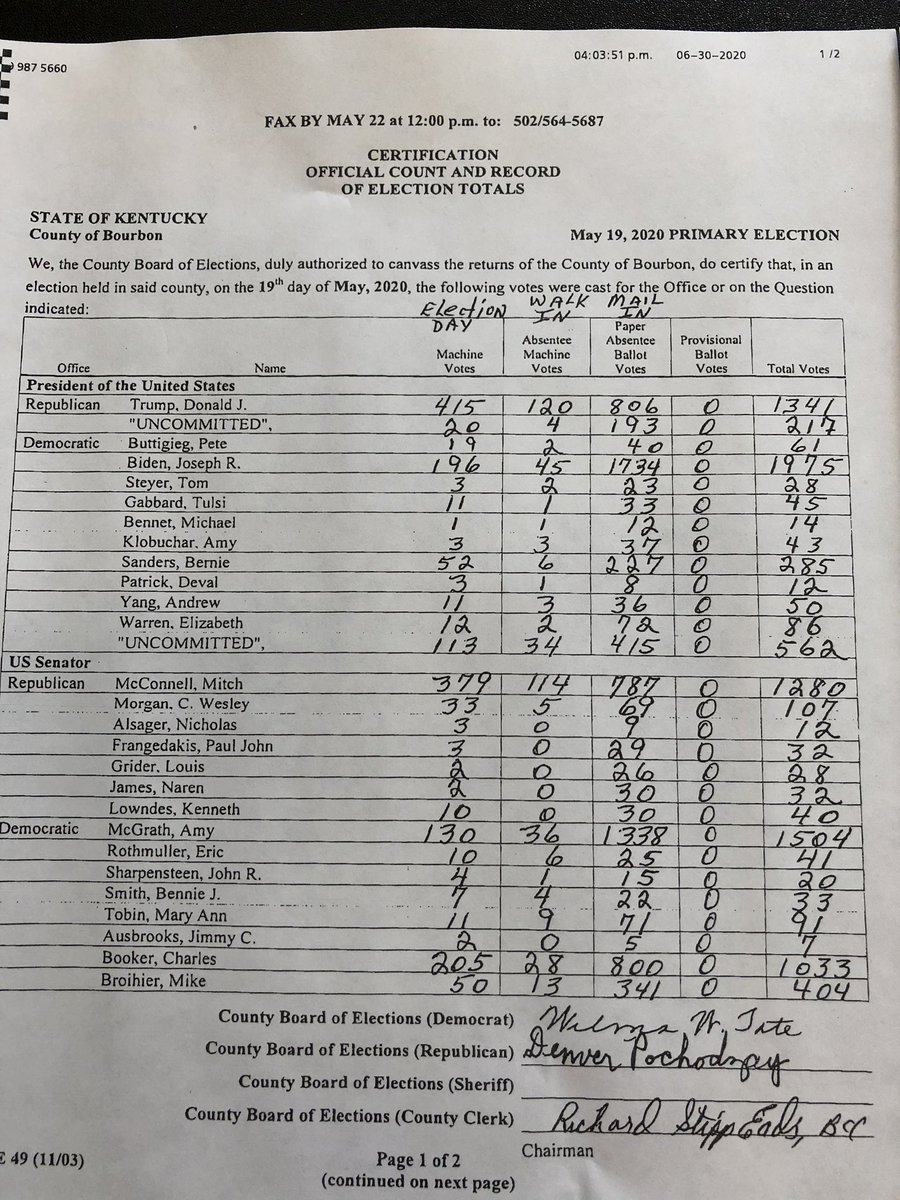 987 5660 04:03:51 p.m. 06-30-2020 1 /2
FAX BY MAY 22 at 12:00 p.m. to: 502/564-5687
CERTIFICATION
OFFICIAL COUNT AND RECORD
OF ELECTION TOTALS
STATE OF KENTUCKY
County of Bourbon May 19, 2020 PRIMARY ELECTION
We, the County Board of Elections, duly authorized to canvass the returns of the County of Bourbon, do certify that, in an
election held in said county, on the 19th day of May, 2020, the following votes were cast for the Office or on the Question
indicated:
Election WALK MAIL
DAY IN IN
Paper
Absentee Absentee Provisional
Machine Machine Ballot Ballot
Office Name Votes Votes Votes Votes Total Votes
President of the United States
Republican Trump, Donald J. 415 120 806 0 1341
"UNCOMMITTED", 20 4 193 0 217
Democratic Buttigieg, Pete 19 2 40 0 61
Biden, Joseph R. 196 45 1734 0 1975
Steyer, Tom 3 2 23 0 28
Gabbard, Tulsi 11 1 33 0 45
Bennet, Michael 1 1 12 0 14
Klobuchar, Amy 3 3 37 0 43
Sanders, Bernie 52 6 227 0 285
Patrick, Deval 3 1 8 0 12
Yang, Andrew 11 3 36 0 50
Warren, Elizabeth 12 2 72 0 86
"UNCOMMITTED", 113 34 415 0 562
US Senator
Republican McConnell, Mitch 379 114 787 0 1280
Morgan, C. Wesley 33 5 69 0 107
Alsager, Nicholas 3 0 9 0 12
Frangedakis, Paul John 3 0 29 0 32
Grider, Louis 2 0 26 0 28
James, Naren 2 0 30 0 32
Lowndes, Kenneth 10 0 30 0 40
Democratic McGrath, Amy 130 36 1338 0 1504
Rothmuller, Eric 10 6 25 0 41
Sharpensteen, John R. 4 1 15 0 20
Smith, Bennie J. 7 4 22 0 33
Tobin, Mary Ann 11 9 71 0 91
Ausbrooks, Jimmy C. 2 0 5 0 7
Booker, Charles 205 28 800 0 1033
Broihier, Mike 50 13 341 0 404
County Board of Elections (Democrat) Wilma W. Tate
County Board of Elections (Republican) Denver
County Board of Elections (Sheriff)
County Board of Elections (County Clerk) Richard Stipp Eads,
Chairman
E 49 (11/03) Page 1 of 2
(continued on next page)